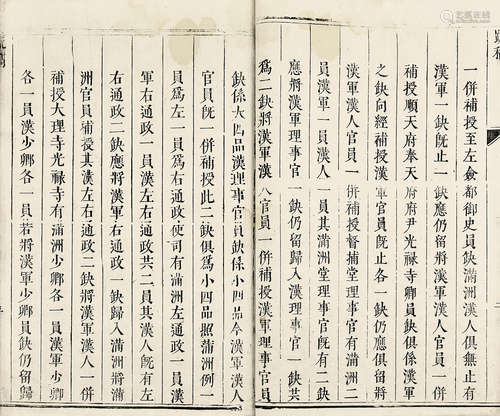 一併補授至左僉都御史員缺滿洲漢人俱無止有
漢軍一缺旣止一員缺應仍留將漢軍漢人官員一併
補授順天府奉天府府尹光祿寺卿員缺俱係漢軍
之缺向經補授漢軍官員旣止各一缺仍應俱留將
漢軍漢人官員一併補授督捕理事官有滿洲二
員漢軍一員漢人一員其滿洲堂理事官二員俱
應將漢軍理事官一缺仍留歸入漢理事官一缺共
為二缺將漢軍漢人官員一併補授漢軍理事官員
缺係大四品漢理事官員缺係小四品今漢軍漢人
官員旣一併補授此二缺俱為小四品照滿洲例一
員為左一員為右通政使司有滿洲左通政一員漢
軍右通政一員漢左右通政共二員其漢人旣有左
右通政二缺應將漢軍右通政一缺歸入滿洲將滿
洲官員補授其漢左右通政二缺將漢軍漢人一併
補授大理寺光祿寺有滿洲少卿各一員漢軍少卿
各一員漢少卿各一員若將漢軍少卿員缺仍留歸